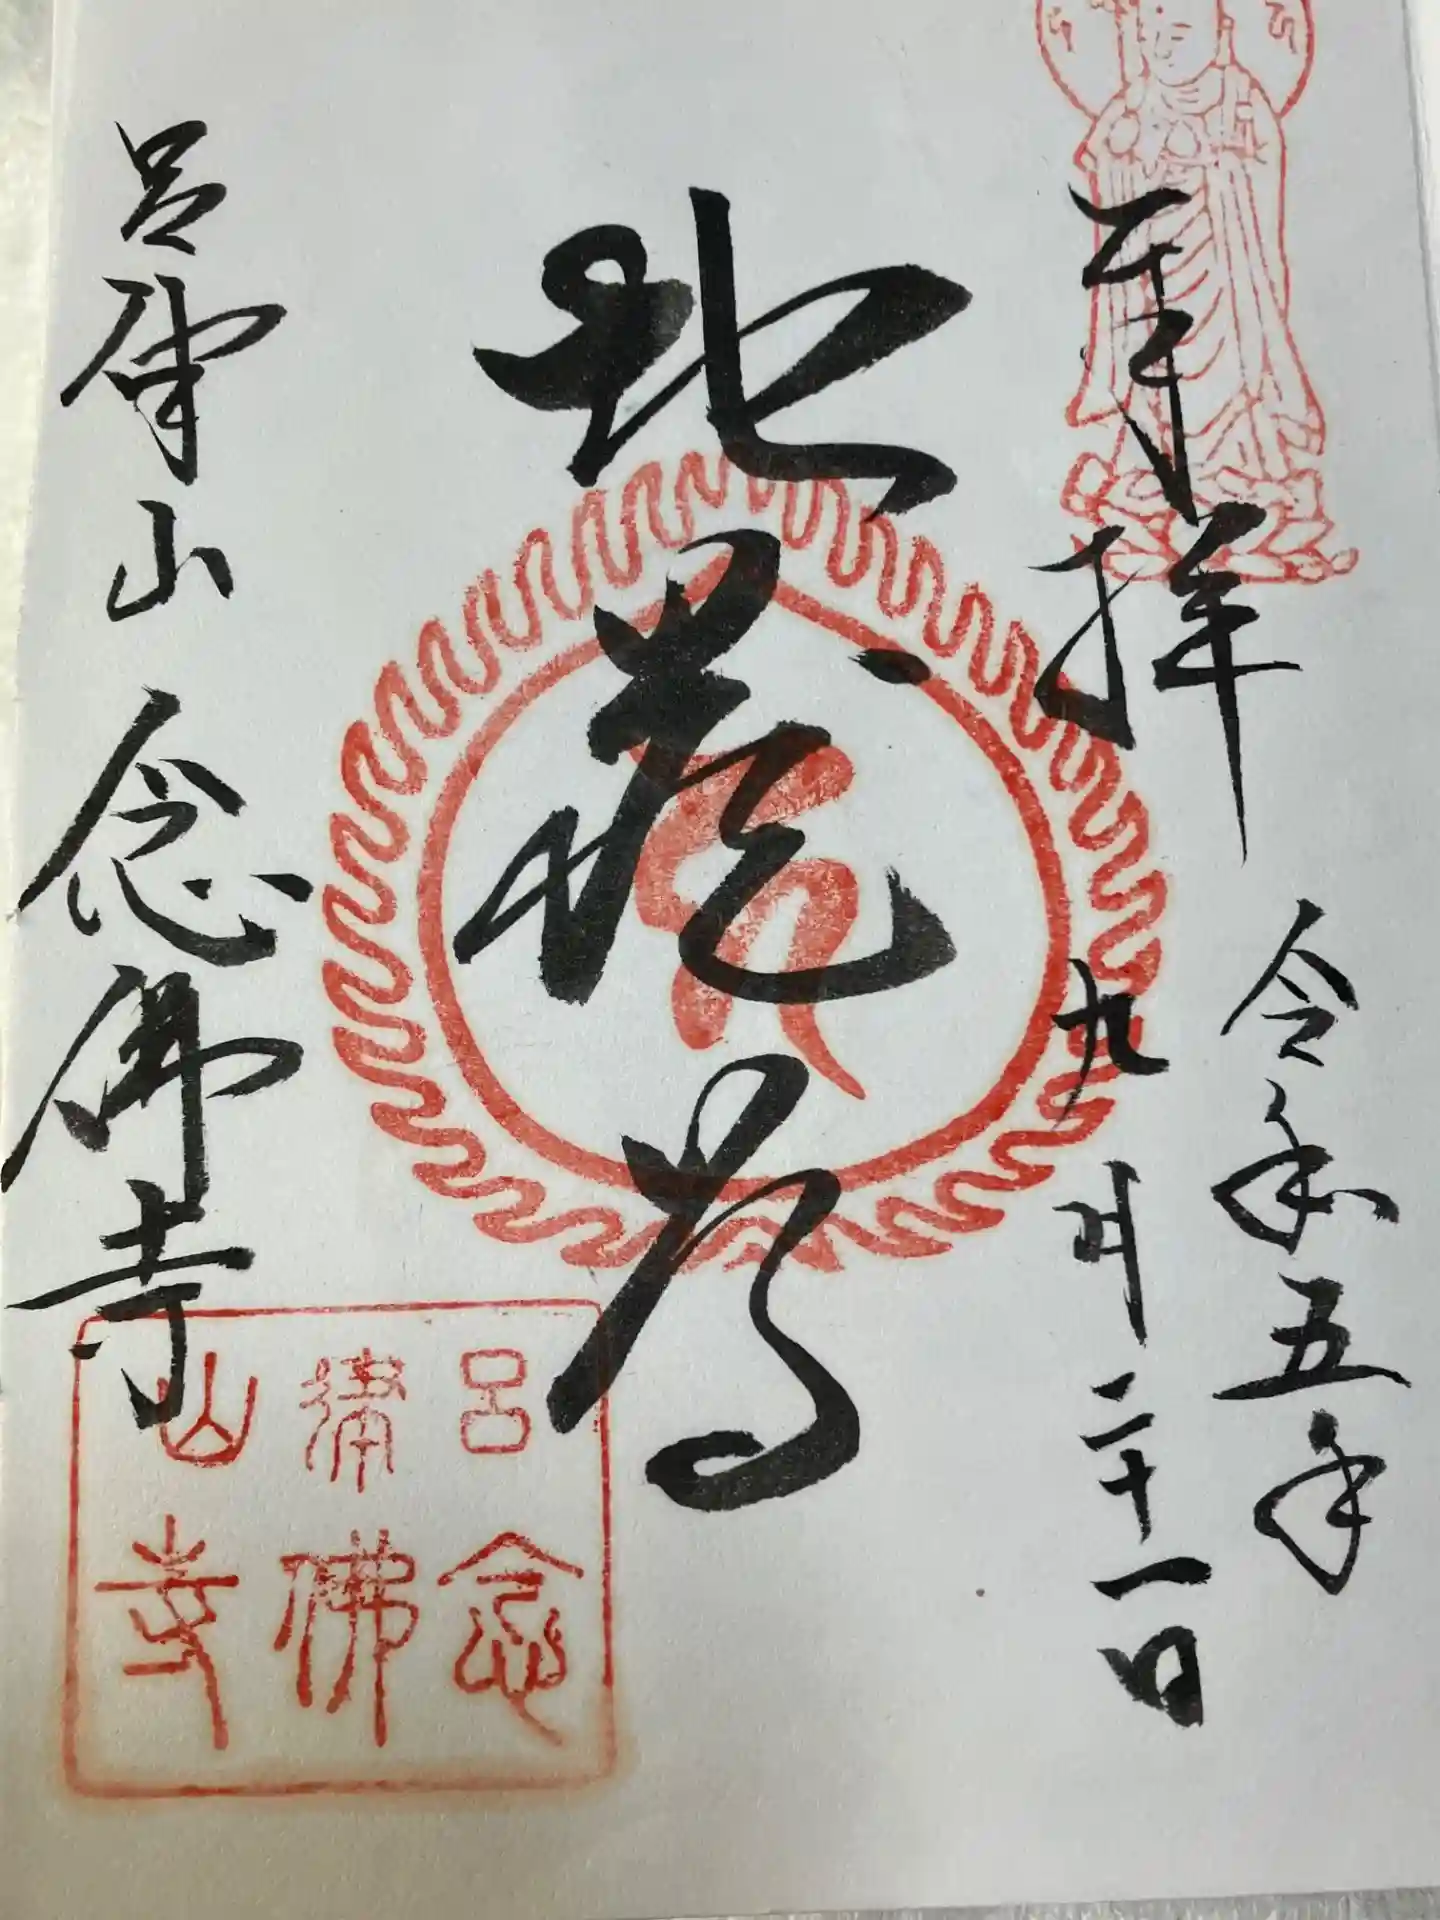 奉拝
令和五年
九月二十一日
地蔵尊
呂律山 念佛寺
呂律山
念佛寺